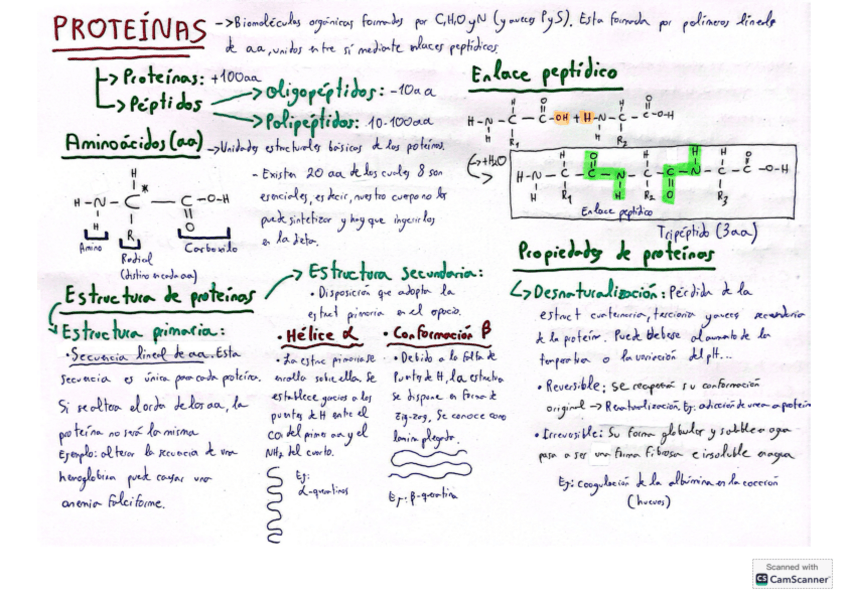 PROTEÍNAS -> Biomoléculas orgánicas formadas por C,H,O y N (y a veces P y S). Esta formada por polímeros lineales
de aa, unidos entre sí mediante enlaces peptídicos.
-> Proteínas: +100aa
-> Péptidos -> Oligopéptidos: -10aa
-> Polipéptidos: 10-100aa
Aminoácidos (aa) -> Unidades estructurales básicas de las proteínas.
- Existen 20 aa de los cuales 8 son
esenciales, es decir, nuestro cuerpo no los
puede sintetizar y hay que ingerirlos
en la dieta.
H-N-C-C-O-H
H
H
*
R
O
Amino
Radical
(distinto en cada aa)
Carboxilo
Enlace peptídico
H-N-C-C-OH + H-N-C-C-O-H
H
R1
O
H
H
R2
O
+H2O
H-N-C-C-N-C-C-N-C-C-O-H
H
H
R1
O
H
H
R2
O
H
H
R3
O
Enlace peptídico
Tripéptido (3aa)
Estructura de proteínas
Estructura primaria:
• Secuencia lineal de aa. Esta
secuencia es única para cada proteína.
Si se altera el orden de los aa, la
proteína no será la misma
Ejemplo: alterar la secuencia de una
hemoglobina puede causar una
anemia falciforme.
Estructura secundaria:
• Disposición que adopta la
estruct primaria en el espacio.
• Hélice α
• La estruc primaria se
enrolla sobre ella. Se
establece gracias a los
puentes de H entre el
CO del primer aa y el
NH2 del cuarto.
Ej:
α-queratinas
• Conformación β
• Debido a la falta de
Puentes de H, la estructura
se dispone en forma de
zig-zag. Se conoce como
lamina plegada.
Ej: β-queratina
Propiedades de proteínas
-> Desnaturalización: Pérdida de la
estruct cuaternaria, terciaria y a veces secundaria
de la proteína. Puede deberse al aumento de la
temperatura o la variación del pH...
• Reversible: se recupera su conformación
original -> Renaturalización. Ej: adicción de urea a proteína
• Irreversible: Su forma globular y soluble en agua
pasa a ser una forma fibrosa e insoluble en agua
Ej: coagulación de la albúmina en la cocción
(huevos)
Scanned with
CS CamScanner